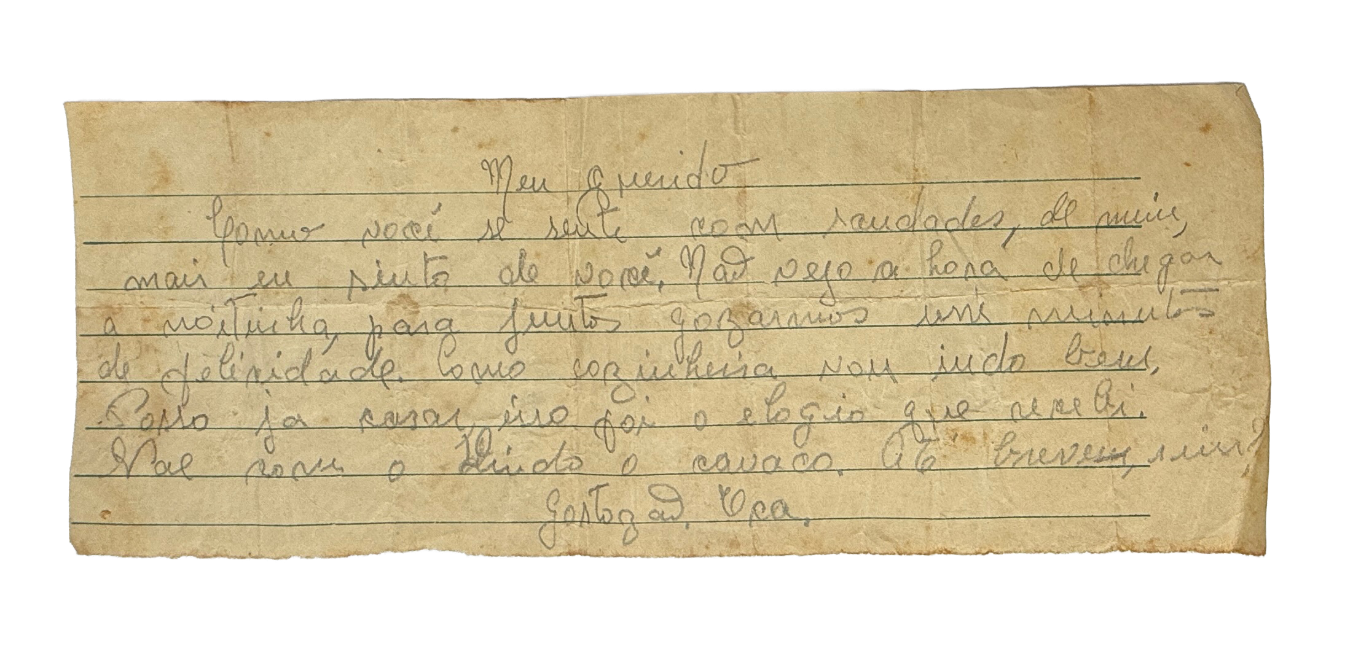 Meu querido
Como você se sente com saudades, de mim,
mais eu sinto de você. Não vejo a hora de chegar
a noitinha, para juntos gozarmos uns minutos
de felicidade. Como cozinheira vou indo bem,
Posso ja casar, isso foi o elogio que recebi.
Vae com o lindo o cavaco. Até breve, meu
Gostozão.